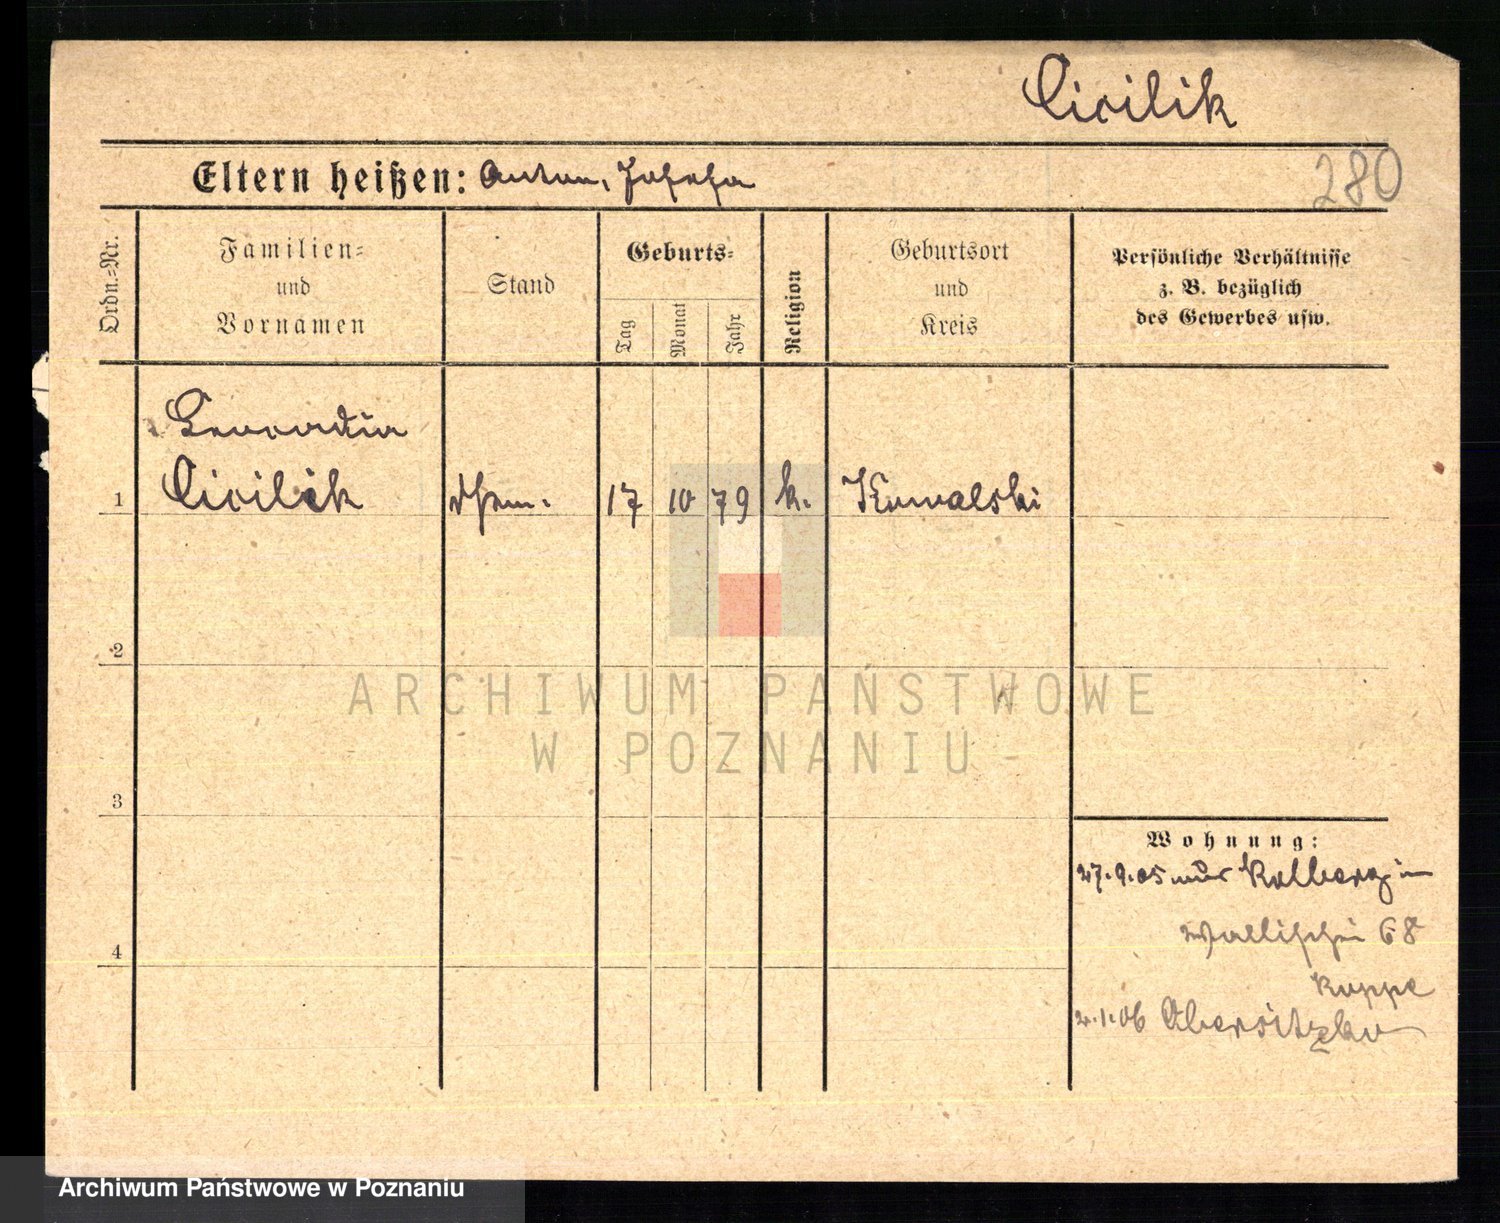 Cicilik
Eltern heißen: Anton, Josefa
280
Ordn.=Nr.
Familien=
und
Vornamen
Stand
Geburts=
Tag
Monat
Jahr
Religion
Geburtsort
und
Kreis
Persönliche Verhältnisse
z. B. bezüglich
des Gewerbes usw.
Leocadia
1 Cicilik 17 10 79 k. Kowalski
2
3
4
ARCHIWUM PAŃSTWOWE
W POZNANIU
Wohnung:
27.9.05 aus Kolberg in
Wallischei 68
Koppe
2.1.06 Obersitzko
Archiwum Państwowe w Poznaniu